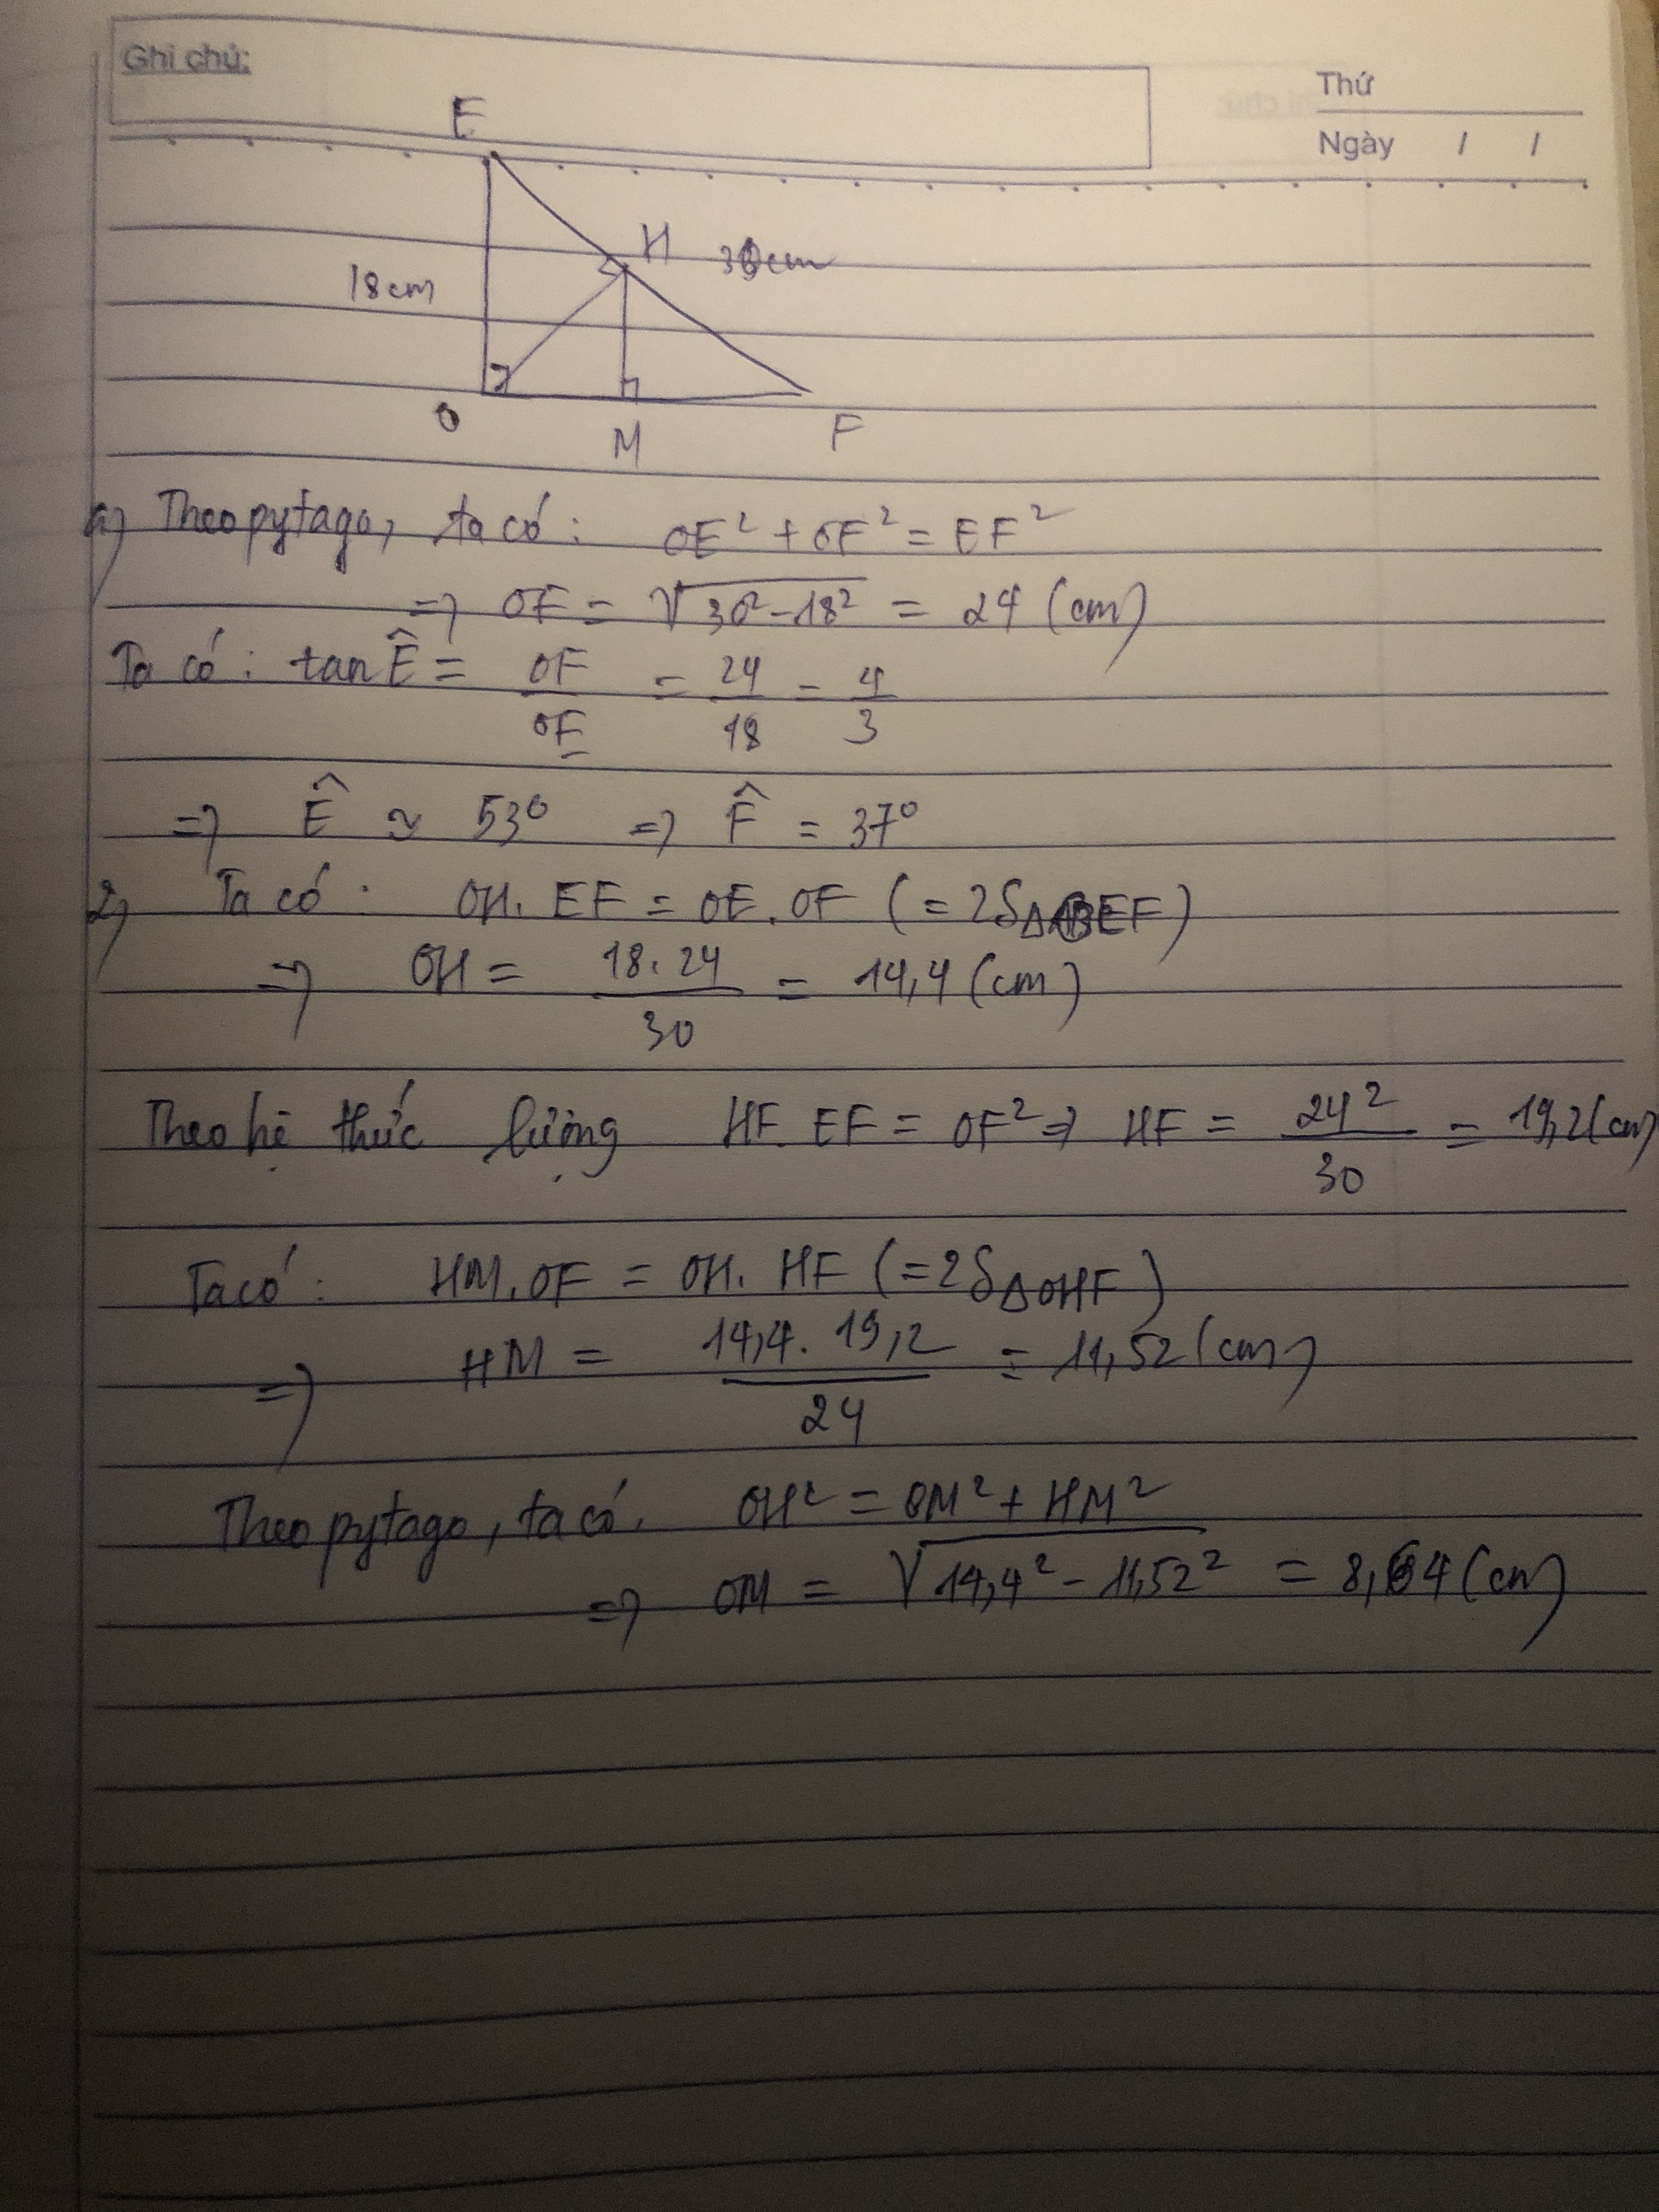 Ghi chú:
Thứ
Ngày / /
E
H 30cm
18cm
O M F
a) Theo pytago, ta có: OE² + OF² = EF²
=> OF = √(30² - 18²) = 24 (cm)
Ta có: tan Ê = OF/OE = 24/18 = 4/3
=> Ê ≈ 53° => F̂ = 37°
2) Ta có: OH. EF = OE. OF (= 2S△OEF)
=> OH = 18.24/30 = 14,4 (cm)
Theo hệ thức lượng HF. EF = OF² => HF = 24²/30 = 19,2 (cm)
Ta có: HM. OF = OH. HF (= 2S△OHF)
=> HM = 14,4. 19,2/24 = 11,52 (cm)
Theo pytago, ta có. OH² = OM² + HM²
=> OM = √(14,4² - 11,52²) = 8,64 (cm)